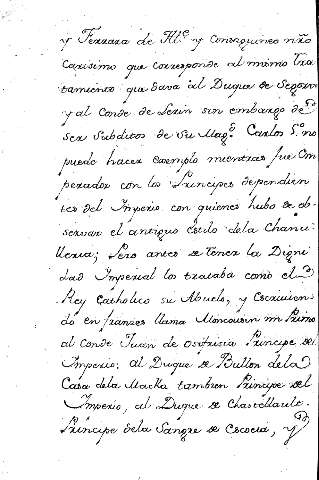 y Ferrara de Alte y Consequineo nro
Carisimo que corresponde al mismo tra
tamiento que dava al Duque de Segorve
y al Conde de Lerin sin embargo de
ser subditos de su Magd Carlos 5º no
puede hacer exemplo mientras fue Em
perador con los Principes dependien
tes del Imperio con quienes hubo de ob
servar el antiguo estilo dela Chanci
lleria; Pero antes de tener la Digni
dad Imperial los trataba como el
Rey Catholico su Abuelo, y escrivien
do en franzes llama Moncousin mi Primo
al Conde Juan de Principe del
Imperio; al Duque de Bullon dela
Casa dela Marka tambien Principe del
Imperio, al Duque de Chastellault
Principe dela Sangre de Escocia, y